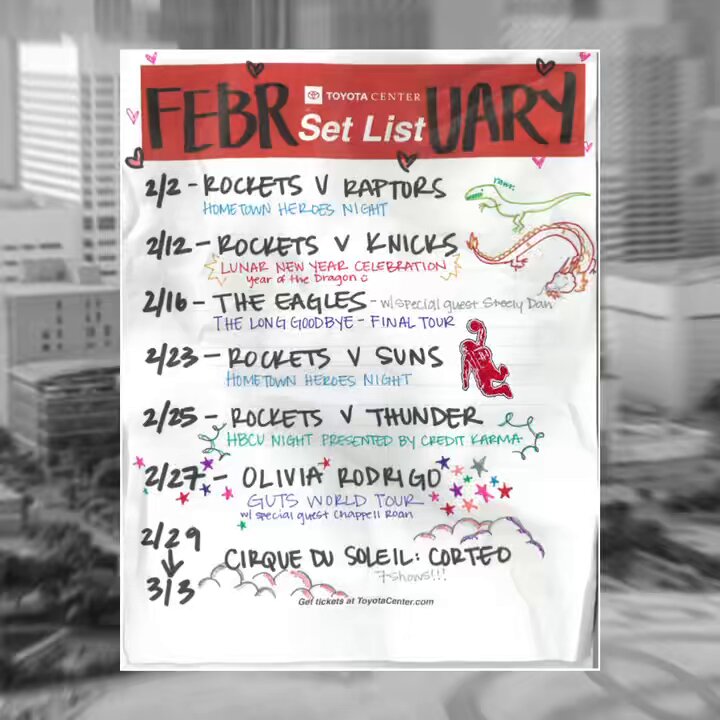 FEBRUARY
TOYOTA CENTER
Set List
2/2 - ROCKETS V RAPTORS
rawr.
HOMETOWN HEROES NIGHT
2/12 - ROCKETS V KNICKS
LUNAR NEW YEAR CELEBRATION
year of the Dragon
2/16 - THE EAGLES - w/special guest Steely Dan
THE LONG GOODBYE - FINAL TOUR
2/23 - ROCKETS V SUNS
HOMETOWN HEROES NIGHT
2/25 - ROCKETS V THUNDER
HBCU NIGHT PRESENTED BY CREDIT KARMA
2/27 - OLIVIA RODRIGO
GUTS WORLD TOUR
w/ special guest Chappell Roan
2/29
CIRQUE DU SOLEIL: CORTEO
7 shows!!!
3/3
Get tickets at ToyotaCenter.com